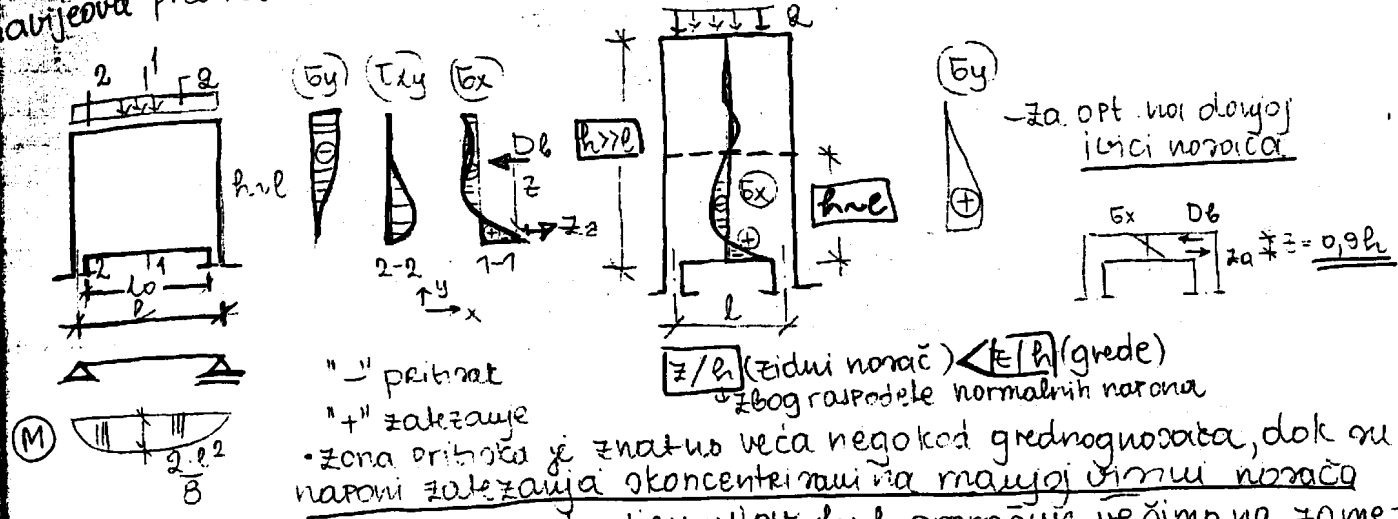 2 1 q
σy τxy σx
Db
z
Zz
h~l
2 1
2-2 1-1
lo
l
y
x
M
q·l²
8
"-" pritisak
"+" zatezanje
q
h>>l
σx
h~l
l
σy
-za opt na donjoj
ivici nosača
σx Db
Za z = 0,9h
z/h (zidni nosač) < z/h (grede)
↓ zbog raspodele normalnih napona
• zona pritiska je znatno veća nego kod grednog nosača, dok su
naponi zatezanja skoncentrisani na manjoj visini nosača